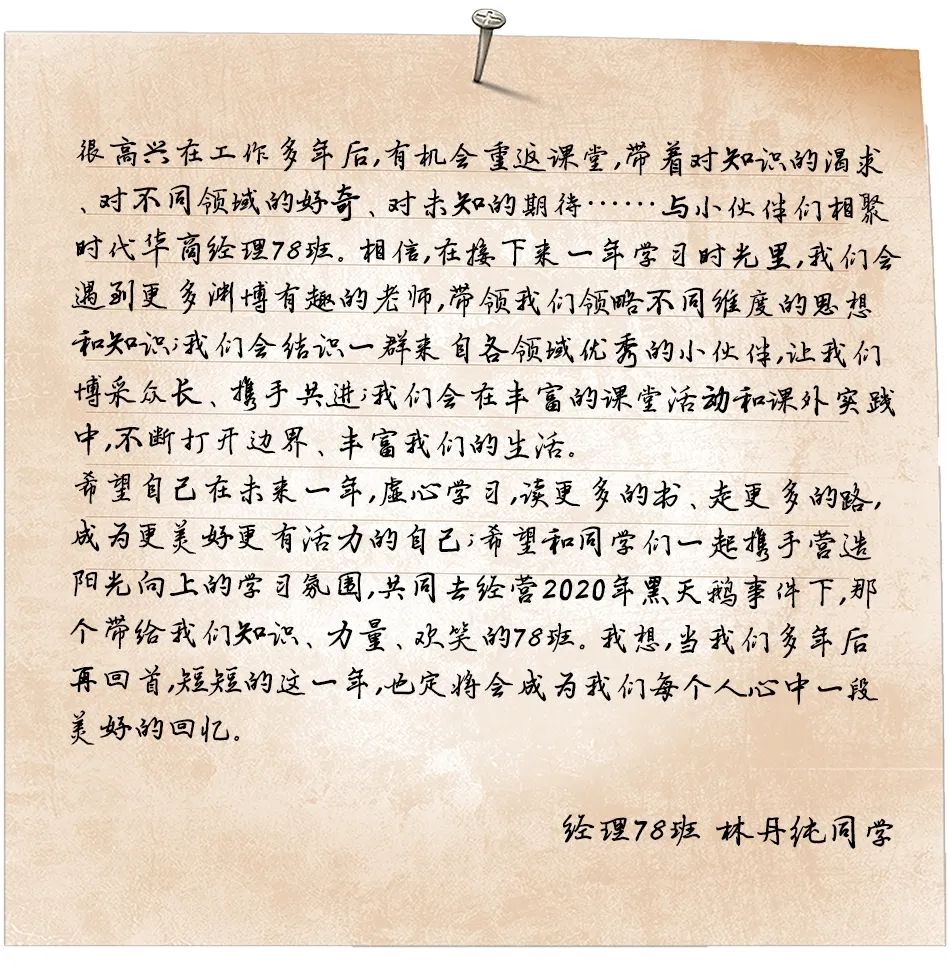 很高兴在工作多年后,有机会重返课堂,带着对知识的渴求
、对不同领域的好奇、对未知的期待……与小伙伴们相聚
时代华商经理78班。相信,在接下来一年学习时光里,我们会
遇到更多渊博有趣的老师,带领我们领略不同维度的思想
和知识;我们会结识一群来自各领域优秀的小伙伴,让我们
博采众长、携手共进;我们会在丰富的课堂活动和课外实践
中,不断打开边界、丰富我们的生活。
希望自己在未来一年,虚心学习,读更多的书、走更多的路,
成为更美好更有活力的自己;希望和同学们一起携手营造
阳光向上的学习氛围,共同去经营2020年黑天鹅事件下,那
个带给我们知识、力量、欢笑的78班。我想,当我们多年后
再回首,短短的这一年,也定将会成为我们每个人心中一段
美好的回忆。
经理78班 林丹纯同学